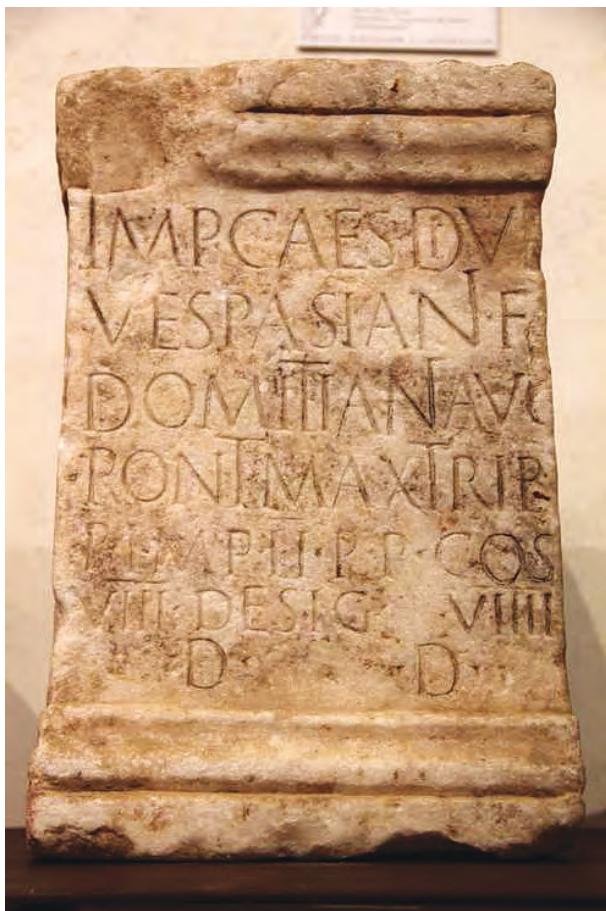 IMP·CAES·DIVI
VESPASIANI·F
DOMITIANI AVG
PONT·MAX TRIB·
P·II·IMP·II·P·P·COS
VIII DESIG VIIII
D D